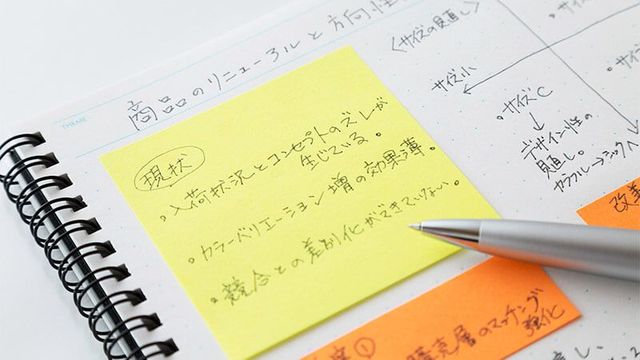 THEME
商品のリニューアルと方向性
現状
。入荷状況とコンセプトのズレが
生じている。
。カラーバリエーション増の効果薄。
。競合との差別化ができていない。
①
購売層のマッチング
強化
<サイズの見直し
サイズ小
。サイズC
↓
デザイン性の
見直し。
カラフル→シックへ
改善